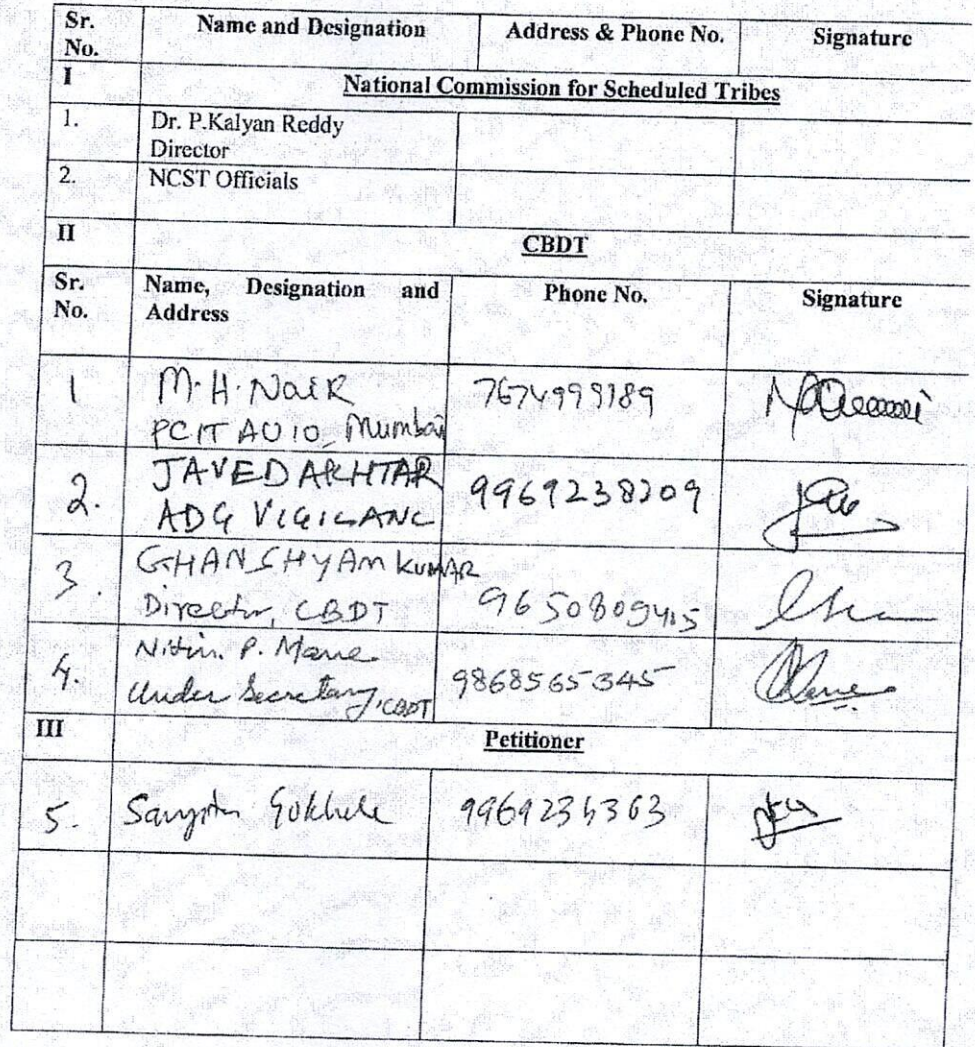 Sr. No. Name and Designation Address & Phone No. Signature
I National Commission for Scheduled Tribes
1. Dr. P.Kalyan Reddy
Director
2. NCST Officials
II CBDT
Sr. No. Name, Designation and Address Phone No. Signature
1 M. H. Naik 7674999189
PCIT AU 10, Mumbai
2. JAVED AKHTAR 9969238209
ADG VIGILANC
3. GHANSHYAM KUMAR
Director, CBDT 9650809415
4. Nitin. P. Mane
Under Secretary, CBDT 9868565345
III Petitioner
5. Gokhele